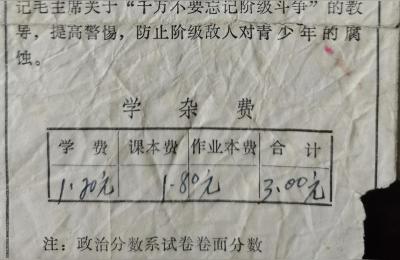 记毛主席关于“千万不要忘记阶级斗争”的教
导，提高警惕，防止阶级敌人对青少年的腐
蚀。
学 杂 费
学 费 课本费 作业本费 合 计
1.20元 1.80元 3.00元
注：政治分数系试卷卷面分数